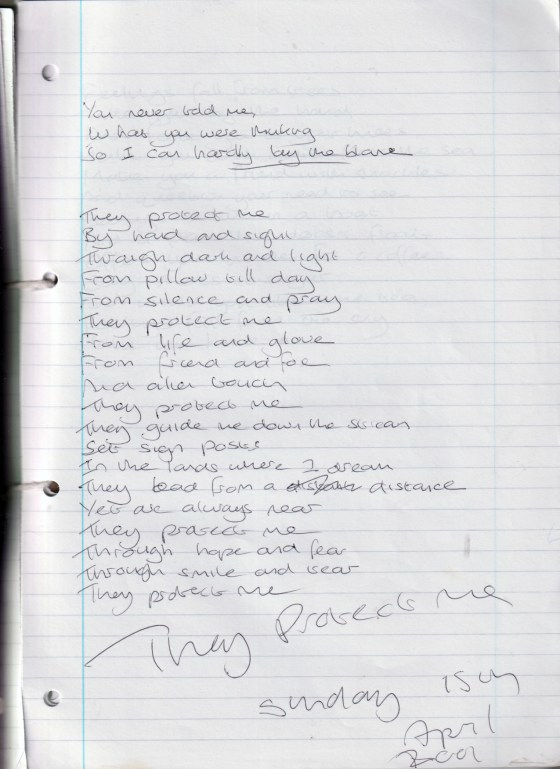 You never told me,
What you were thinking
So I can hardly lay the blame
They protect me
By hand and sight
Through dark and light
From pillow till day
From silence and pray
They protect me
From life and glove
From friend and foe
And alien touch
They protect me
They guide me down the stream
Set sign posts
In the lands where I dream
They lead from a distance
Yet are always near
They protect me
Through hope and fear
Through smile and tear
They protect me
They Protects me
Sunday 15th
April
2001